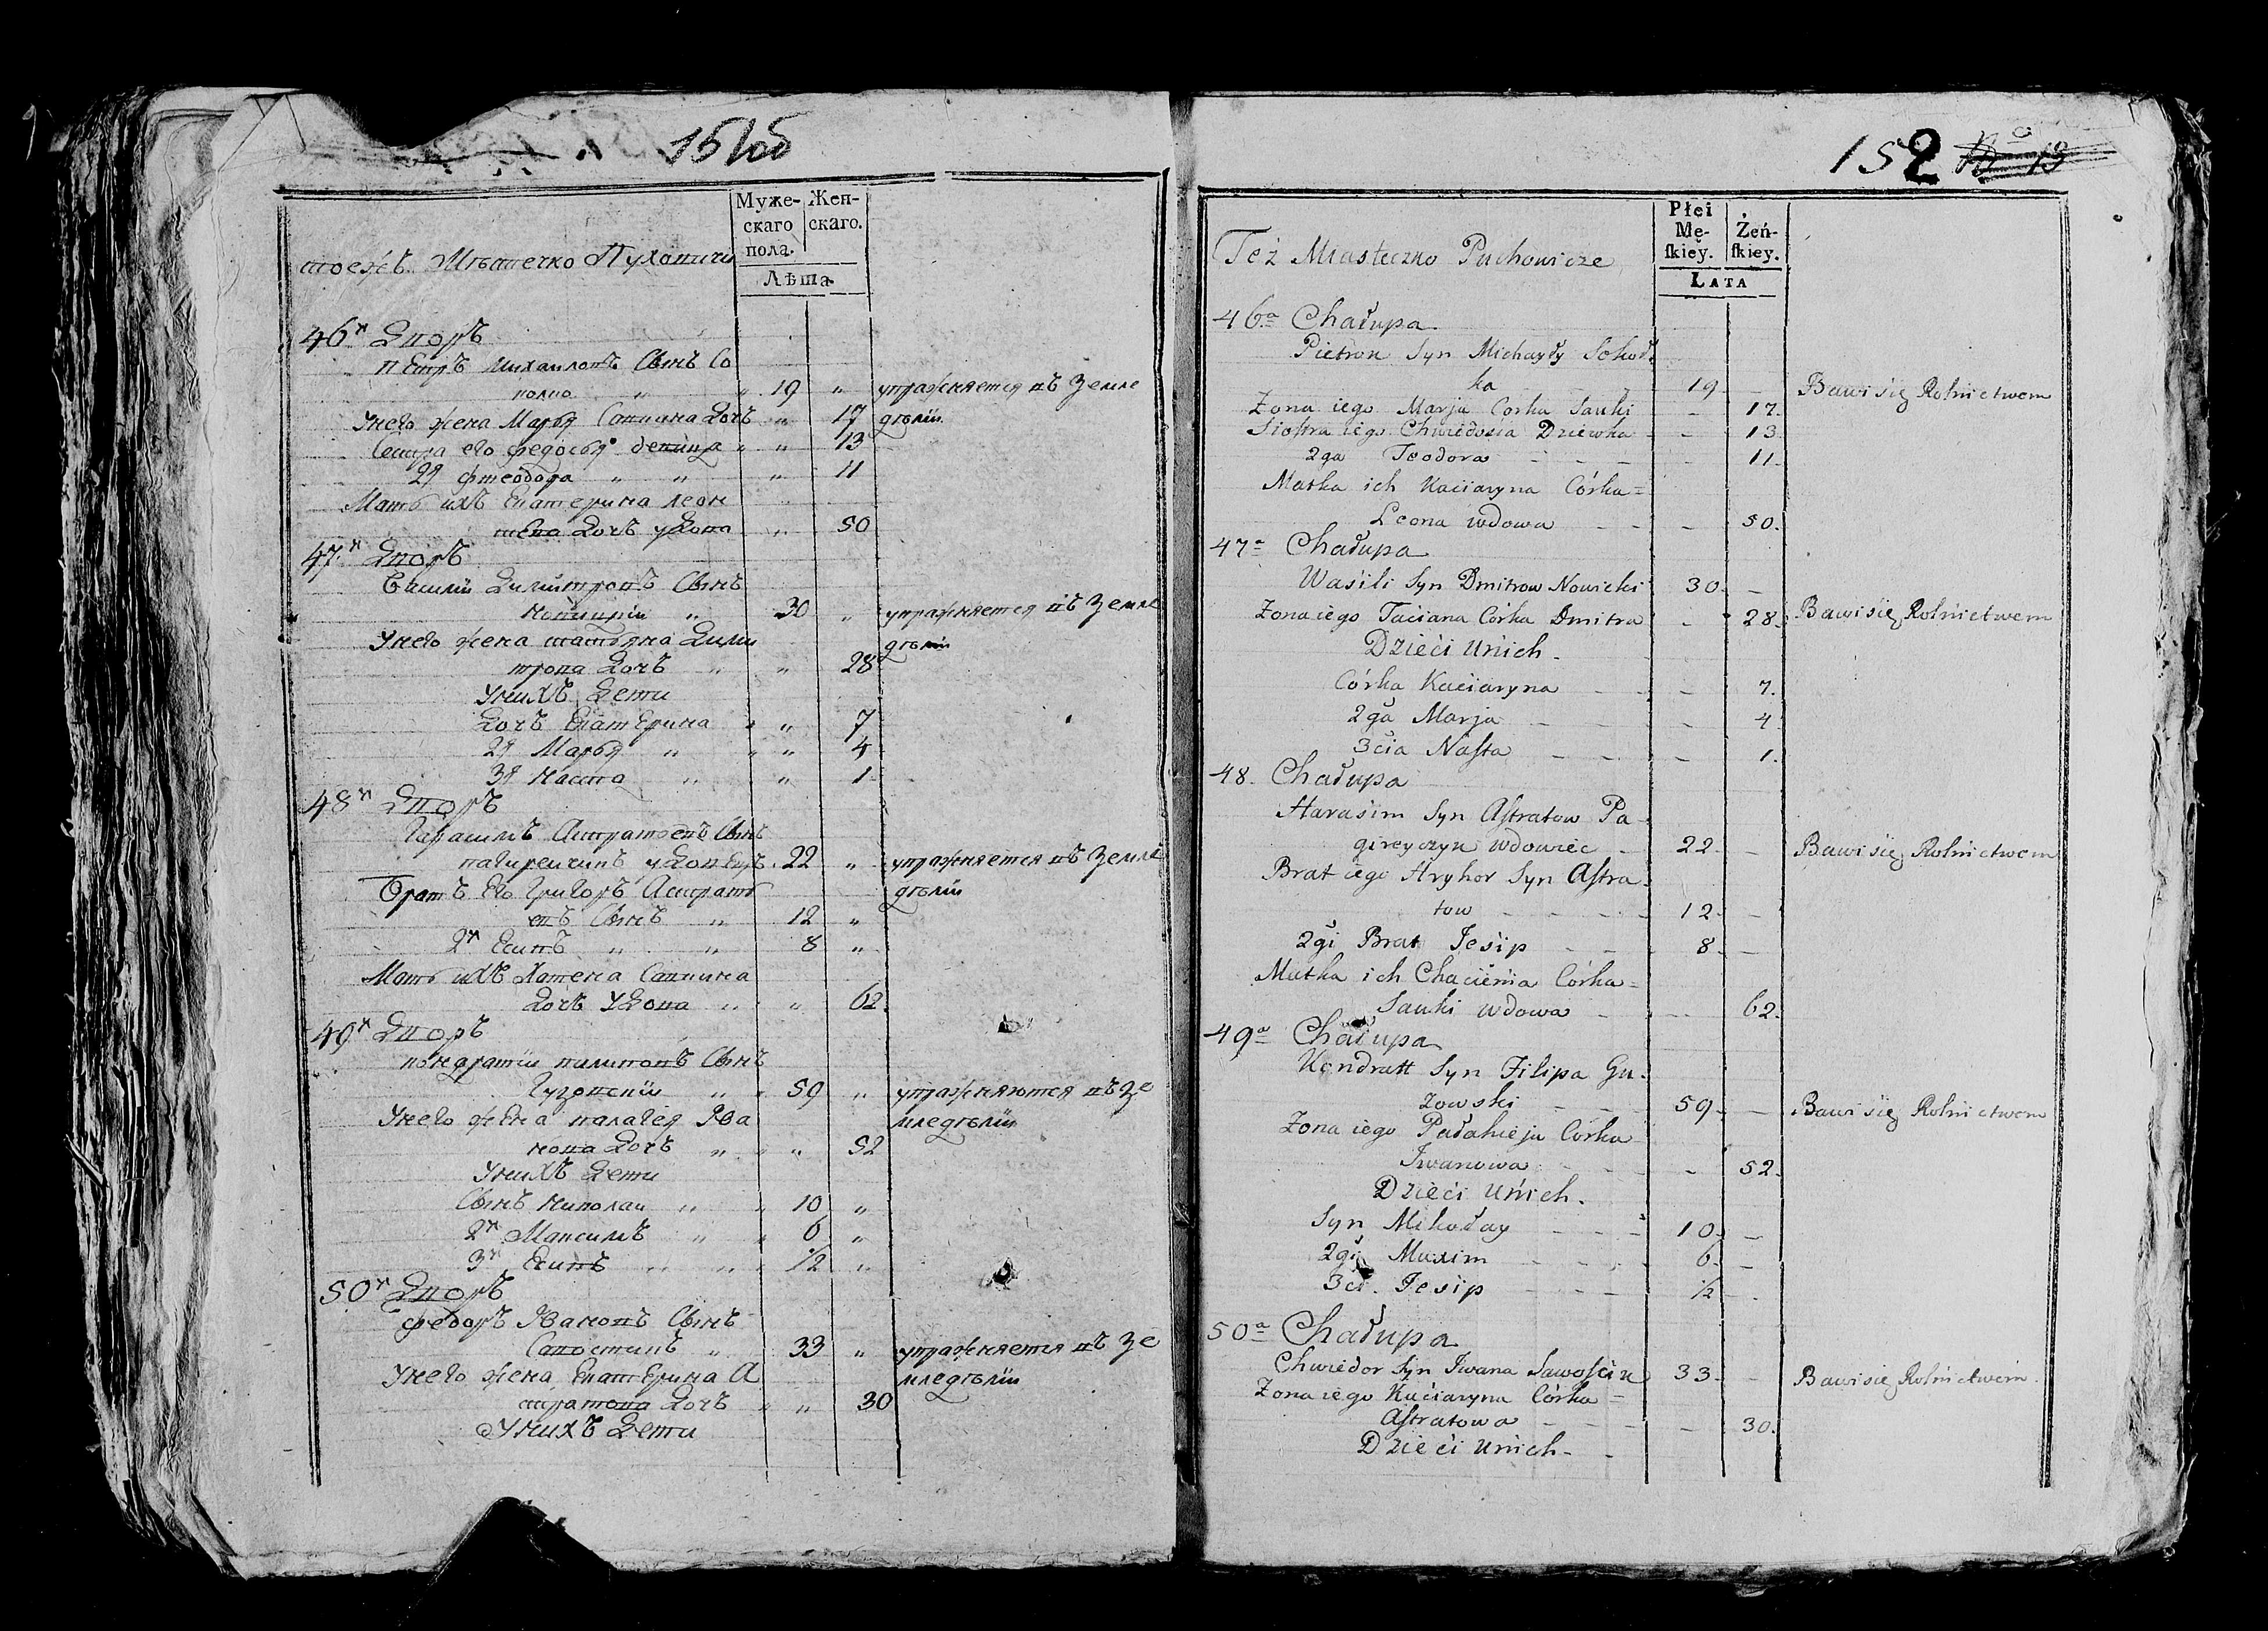 151об
Муже-
скаго
пола.
Жен-
скаго.
Лѣта
тоежъ Мѣстечко Пуховичи
46й Дворъ
Петръ Михаиловъ Сынъ Со
колко " " 19 " упражняется въ Земле
Унего жена Марья Савкина Дочь " 17 дѣлiи
Сестра его Федосья девица " " 13
2я Фтеодора " " " 11
Мать ихъ Екатерина Леон
тева Дочь удова " 50
47й Дворъ
Василiй Димитровъ Сынъ
Новицкiи " 30 " упражняется въ Земле
Унего жена татьяна Дими дѣлiи
трова Дочь " " 28
Унихъ Дети
Дочь Екатерина " " 7
2я Марья " " " 4
3я Наста " " 1
48й Дворъ
Гарасимъ Астратовъ Сынъ
пагиреичикъ удовецъ 22 " упражняется въ Земле
Братъ его Григоръ Астрать дѣлiи
евъ Сынъ " 12 "
2й Есипъ " " 8 "
Мать ихъ Хатеня Савкина
Дочь Удова " " 62
49й Дворъ
Кондратiи Пилиповъ Сынъ
Гузовскiи " " 59 " упражняются въ Зе
Унего жена палагея Ива мледѣлiи
нова Дочь " " " 52
Унихъ Дети
Сынъ Николаи " " 10 "
2й Максимъ " " 6 "
3й Есипъ " " " 1/2 "
50й Дворъ
Федоръ Ивановъ Сынъ
Савостинъ " 33 " упражняется въ Зе
Унего жена Екатерина А мледѣлiи
стратова Дочь " " 30
Унихъ Дети
152 No 13
Płci
Mę-
skiey.
Żeń-
skiey.
LATA
Też Miasteczko Puchowicze
46a Chałupa
Pietron Syn Michayły Sokoł-
ka 19 - Bawi się Rolnictwem
Zona iego Marja Corka Sauki - 17.
Siostra iego Chwiedosia Dziewka - 13
2ga Teodora - 11.
Matka ich Kaciaryna Córka=
Leona wdowa - 50.
47a Chałupa
Wasili Syn Dmitrow Nowicki 30. -
Zona iego Taciana Córka Dmitra - 28. Bawi się Rolnictwem
Dzieci Unich.
Córka Kaciaryna - 7.
2ga Marja - 4
3cia Nasta - 1.
48. Chałupa
Harasim Syn Astratow Pa-
gireyczyk wdowiec - 22 - Bawi się Rolnictwem
Brat iego Hryhor Syn Astra-
tow 12. -
2gi Brat Jesip 8. -
Matka ich Chacienia Córka=
Sauki wdowa - 62.
49a Chałupa
Kondratt Syn Filipa Gu-
zowski 59. - Bawi się Rolnictwem
Zona iego Pałahieja Córka
Iwanowa - 52.
Dzieci Unich.
Syn Mikołay 10. -
2gi Maxim 6. -
3ci. Jesip 1/2 -
50a Chałupa
Chwiedor Syn Iwana Sawoscin 33. - Bawi się Rolnictwem.
Zona iego Kaciaryna Córka=
Astratowa - 30.
Dzieci Unich-